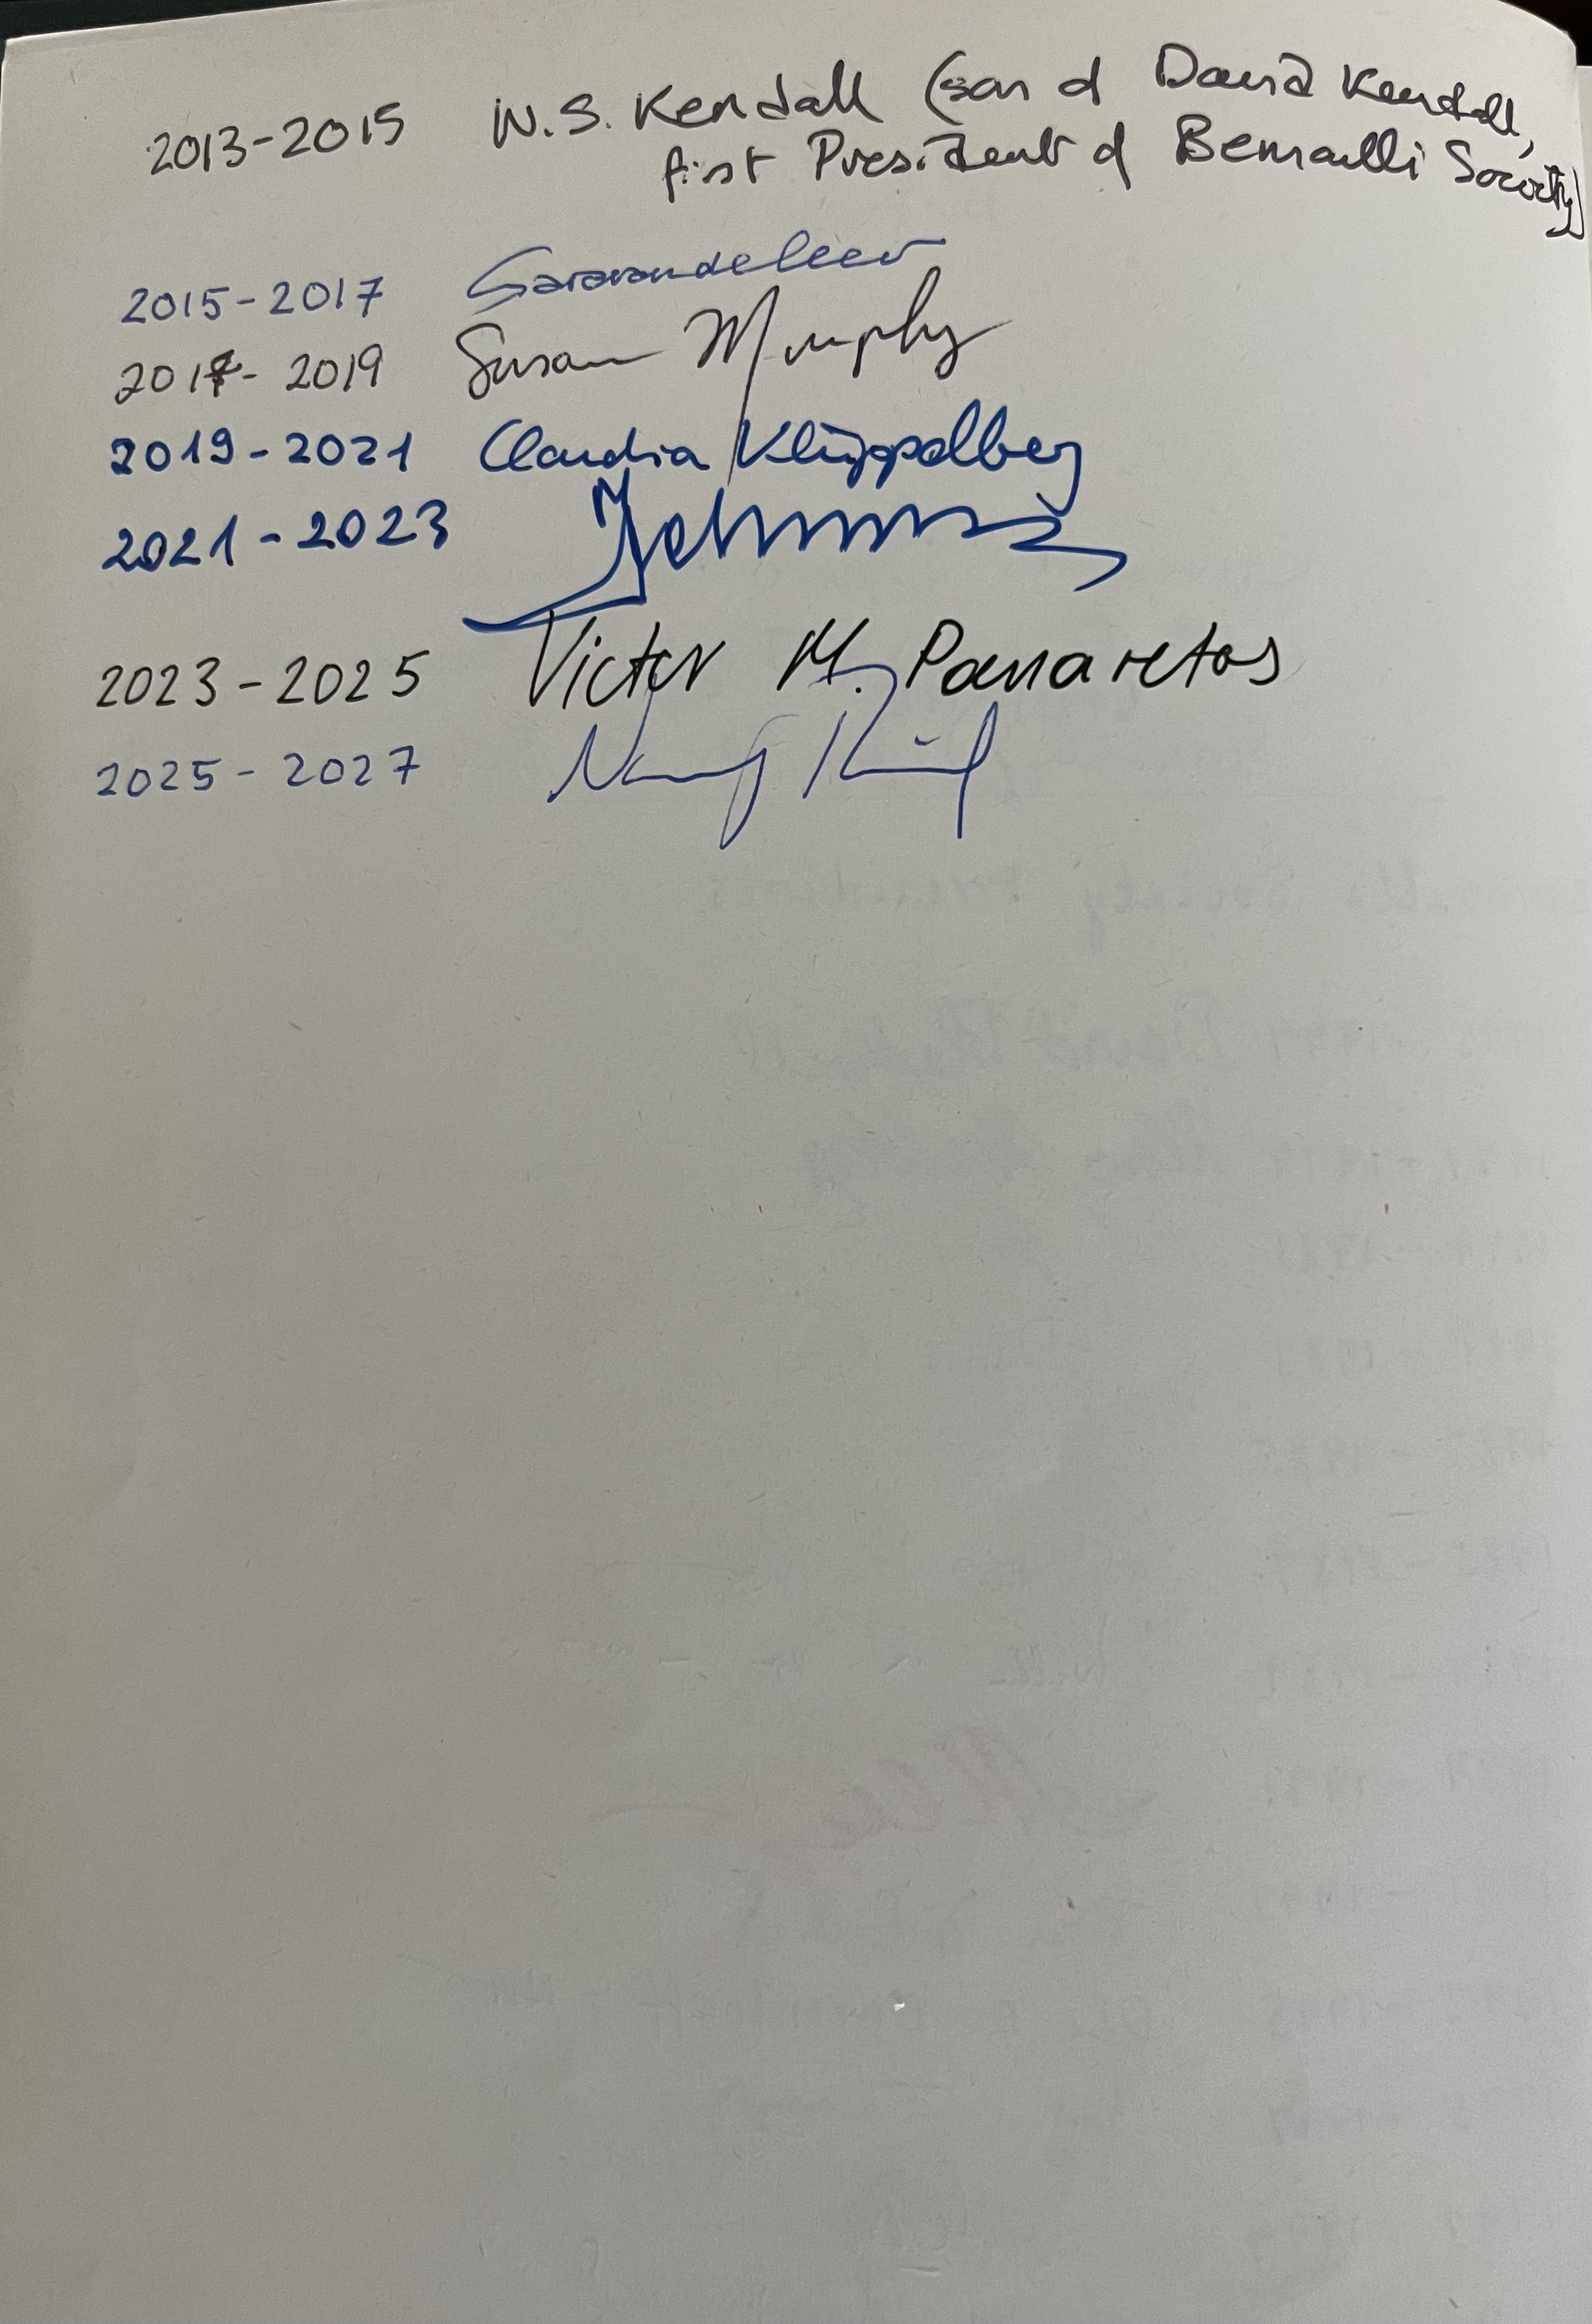 2013-2015 W.S. Kendall (son of David Kendall,
first President of Bernoulli Society)
2015-2017 Sara van de Geer
2017-2019 Susan Murphy
2019-2021 Claudia Klüppelberg
2021-2023
2023-2025 Victor M. Panaretos
2025-2027 Nancy Reid